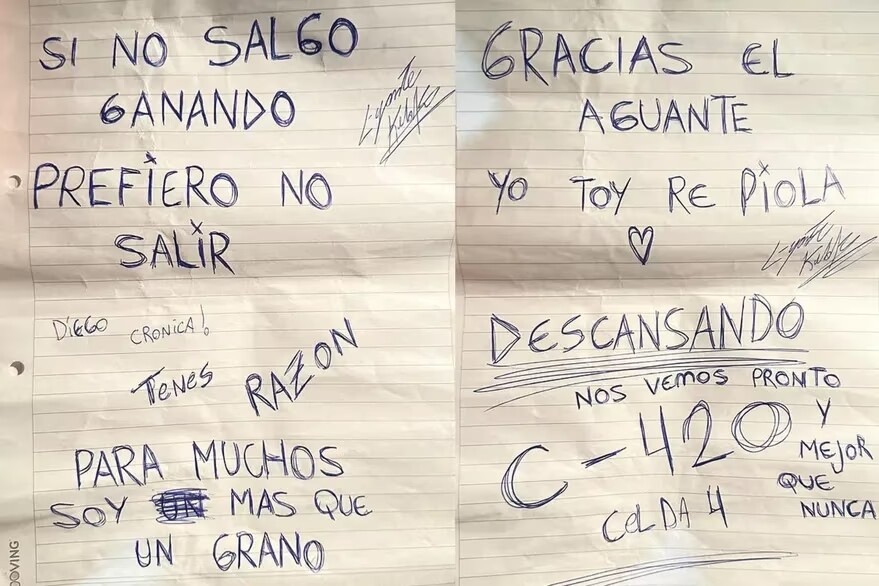 SI NO SALGO
GANANDO
PREFIERO NO
SALIR
DIEGO CRONICA!
TENES RAZON
PARA MUCHOS
SOY UN MAS QUE
UN GRANO
OOVING
GRACIAS EL
AGUANTE
YO TOY RE PIOLA
DESCANSANDO
NOS VEMOS PRONTO
C-420 Y
MEJOR
QUE
NUNCA
CELDA 4